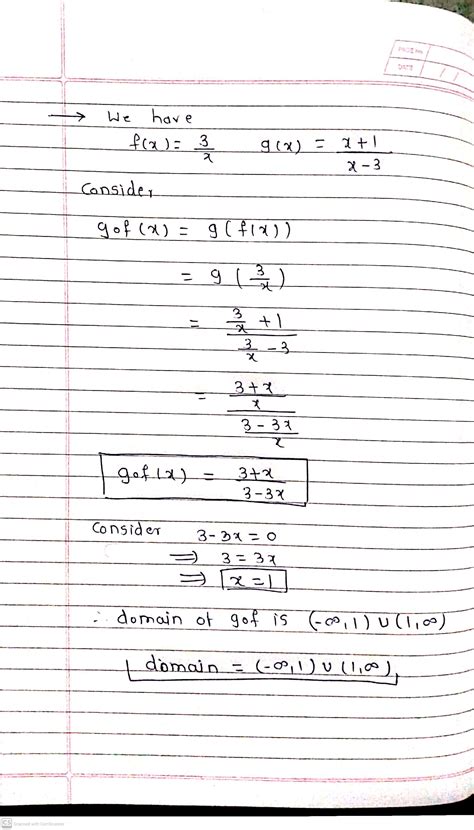 PAGE No.
DATE / /
→ We have
f(x) = 3/x g(x) = x+1/x-3
Consider,
gof(x) = g(f(x))
= g(3/x)
= 3/x + 1 / 3/x - 3
= 3+x/x / 3-3x/x
gof(x) = 3+x/3-3x
Consider 3-3x = 0
⇒ 3 = 3x
⇒ x = 1
∴ domain of gof is (-∞,1) ∪ (1,∞)
domain = (-∞,1) ∪ (1,∞)
CS Scanned with CamScanner